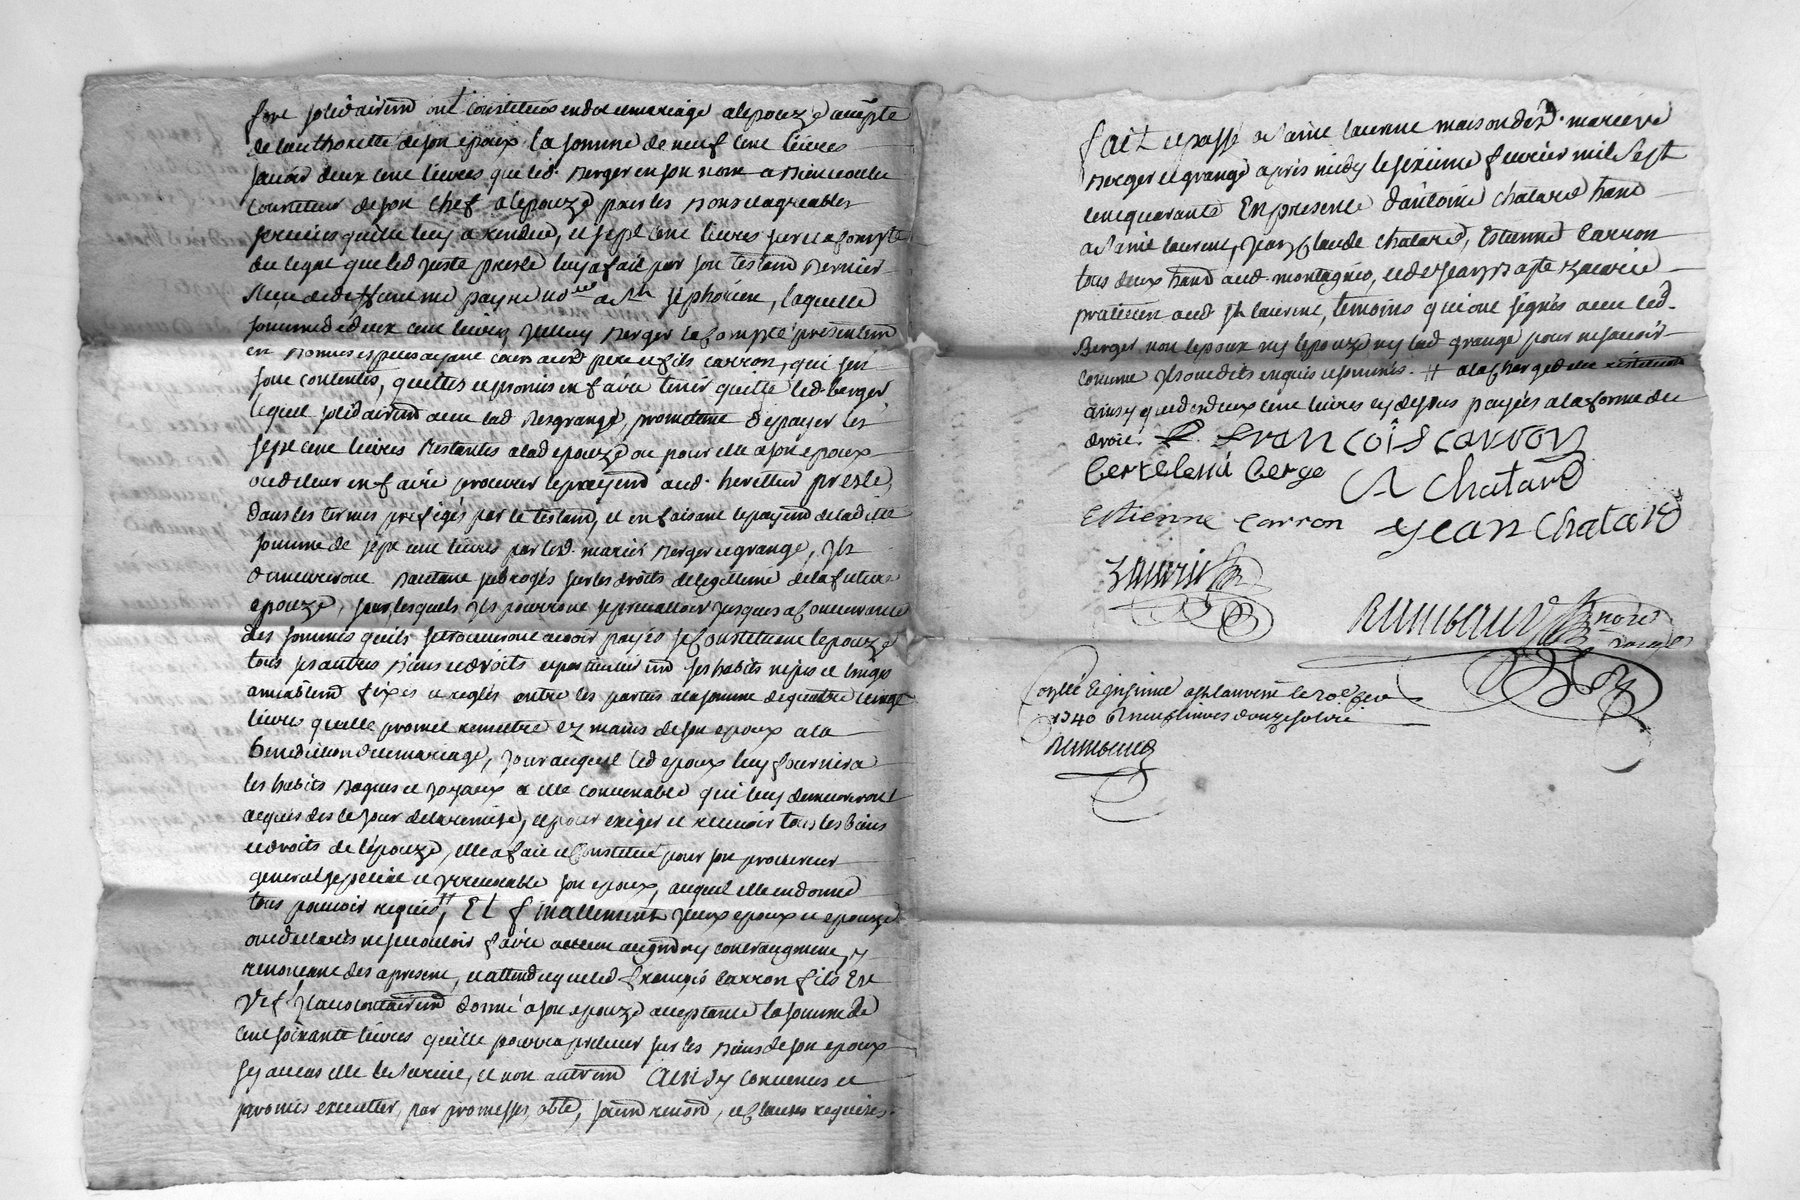 solidairemt ont constitués en dot de mariage a lepouze accepte
de lauthorette de son epoux la somme de neuf cent livres
savoir deux cent livres que led. Berger en son nom a bien voulu
constituer de son chef a lepouze pour les bons et agreables
services quelle luy a rendue, et sept cent livres sur et a compte
du legat que led presle luy a fait par son testamt dernier
laquelle
somme de deux cent livres, yceluy Berger la compté presentemt
en bonnes especes ayant cours aud. pere et fils Carron, qui sen
sont contentés, quittes et promis en faire tenir quitte led. berger
lequel solidairemt avec lad desgrange, promettent de payer les
sept cent livres restantes a lad epouze ou pour elle a son epoux
ou de leur en faire procurer le payemt aud. heritier presle,
dans les termes prefigés par le testamt, et en faisant le payemt de ladite
somme de sept cent livres par led. mariés Berger et grange, yls
demeureront dautant subrogés sur les droits de legitime de la future
epouze, sur lesquels yls pourront se prevalloir jusques a concurrance
des sommes quils se trouveront avoir payés, se constituant lepouze
tous ses autres biens et droits et particulieremt ses habits nipes et linges
amiablemt fixés et reglés entre les parties a la somme de quatre vingt
livres quelle promet remettre ez mains de son epoux a la
benediction du mariage, jour auquel led epoux luy fournira
les habits bagues et joyaux a elle convenable qui luy demeureront
acquis des le jour de la remise, et pour exiger et recevoir tous les biens
et droits de lepouze, elle a fait et constitué pour son procureur
general special et yrrevocable son epoux, auquel elle en donne
tous pouvoir requis #, Et finallement yceux epoux et epouze
ont declarés ne se vouloir faire aucun augmt ny contraugment, y
renoncant des a present, et attendu que led françois Carron fils est
donné a son epouze acceptante la somme de
cent soixante livres quelle pourra prelever sur les biens de son epoux
sy au cas elle le survie, et non autremt Ainsy convenus et
promis executter, par promesses, oblō, soumō renonō, et clauses requises.
fait et passé a saint laurent maison desd. mariés
Berger et grange apres midy le sixieme fevrier mil sept
cent quarante En presence dantoine chatard hant
a saint laurent, jean claude chatard, Estienne Carron
tous deux hant aud. montagnes, et de jean
praticien aud St laurent, temoins qui ont signés avec led.
Berger non lepoux ny lepouze ny lad grange pour ne scavoir
comme yls ont dits enquis et sommés. # a la charge de la restitution
ainsy que desd deux cent livres cy dessus payées a la forme du
droit. françois Carron
bertelemi berge A Chatard
Estienne Carron jean Chatard
Rimbaud nore
royal
Collé et insinué a St laurent le 20e fev
1740 neuf livres douze sols
Rimbaud